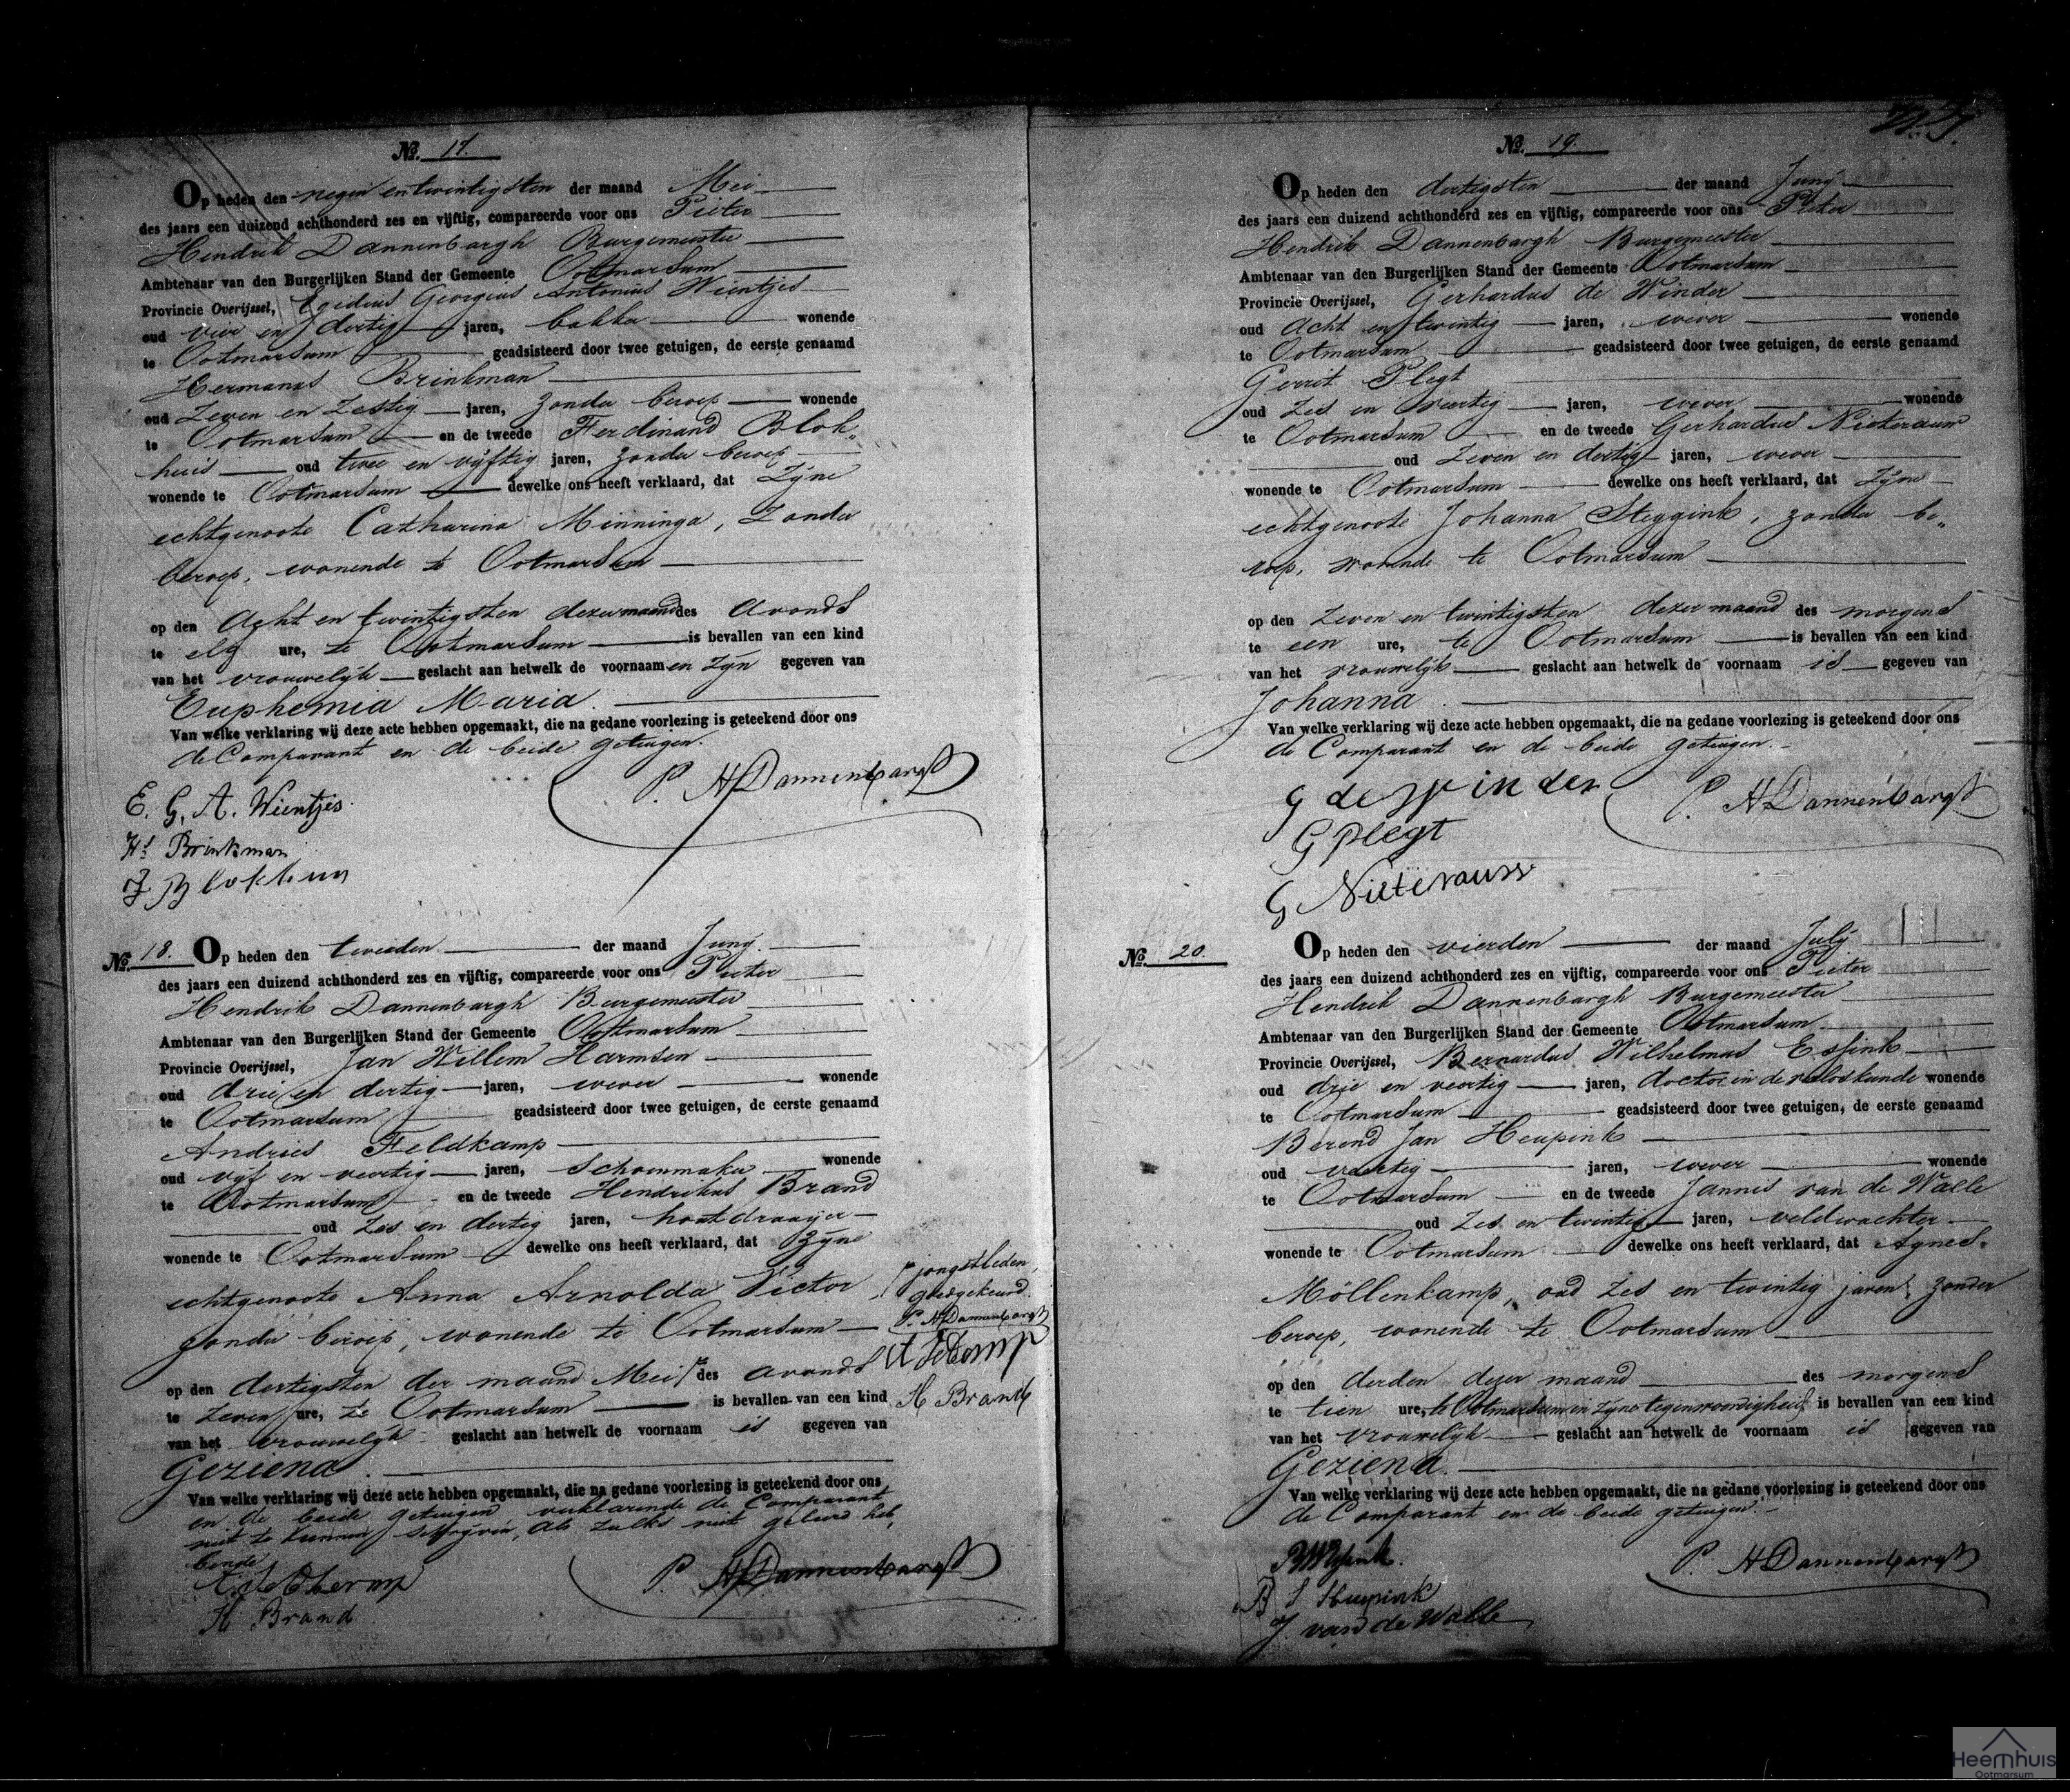 No. 17.
Op heden den negen en twintigsten der maand Mei
des jaars een duizend achthonderd zes en vijftig, compareerde voor ons Pieter
Hendrik Dannenbargh Burgemeester
Ambtenaar van den Burgerlijken Stand der Gemeente Ootmarsum
Provincie Overijssel, Egidius Georgius Antonius Wientjes
oud vier en dertig jaren, bakker wonende
te Ootmarsum geadsisteerd door twee getuigen, de eerste genaamd
Hermanus Brinkman
oud Zeven en Zestig jaren, zonder beroep wonende
te Ootmarsum en de tweede Ferdinand Blok„
huis oud twee en vijftig jaren, zonder beroep
wonende te Ootmarsum dewelke ons heeft verklaard, dat Zijne
echtgenoote Catharina Minninga, Zonder
beroep, wonende te Ootmarsum
op den Acht en twintigsten dezer maand des avonds
te elf ure, te Ootmarsum is bevallen van een kind
van het vrouwelijk geslacht aan hetwelk de voornaamen zijn gegeven van
Euphemia Maria.
Van welke verklaring wij deze acte hebben opgemaakt, die na gedane voorlezing is geteekend door ons
de Comparant en de beide getuigen.
P. H Dannenbargh
E. G. A. Wientjes.
Hs Brinkman
F Blokhuis
No. 18. Op heden den tweeden der maand Junij
des jaars een duizend achthonderd zes en vijftig, compareerde voor ons Pieter
Hendrik Dannenbargh Burgemeester
Ambtenaar van den Burgerlijken Stand der Gemeente Ootmarsum
Provincie Overijssel, Jan Willem Harmsen
oud drie en dertig jaren, wever wonende
te Ootmarsum geadsisteerd door twee getuigen, de eerste genaamd
Andries Feldkamp
oud vijf en veertig jaren, Schoenmaker wonende
te Ootmarsum en de tweede Hendrikus Brand
oud Zes en dertig jaren, houtdraaijer
wonende te Ootmarsum dewelke ons heeft verklaard, dat Zijne
echtgenoote Anna Arnolda Victor,
zonder beroep, wonende te Ootmarsum
op den dertigsten der maand Mei des avonds
te Zeven ure, te Ootmarsum is bevallen van een kind
van het vrouwelijk geslacht aan hetwelk de voornaam is gegeven van
Geziena.
Van welke verklaring wij deze acte hebben opgemaakt, die na gedane voorlezing is geteekend door ons
en de beide getuigen verklarende de Comparant
niet te kunnen schrijven, als zulks niet geleerd heb„
bende
P. H Dannenbargh
H Brand
jongstleden,
goedgekeurd.
P. H Dannenbargh
H Brand
No. 19.
Op heden den dertigsten der maand Junij
des jaars een duizend achthonderd zes en vijftig, compareerde voor ons Pieter
Hendrik Dannenbargh Burgemeester
Ambtenaar van den Burgerlijken Stand der Gemeente Ootmarsum
Provincie Overijssel, Gerhardus de Winder
oud Acht en twintig jaren, wever wonende
te Ootmarsum geadsisteerd door twee getuigen, de eerste genaamd
Gerrit Plegt
oud Zes en veertig jaren, wever wonende
te Ootmarsum en de tweede Gerhardus
oud Zeven en dertig jaren, wever
wonende te Ootmarsum dewelke ons heeft verklaard, dat Zijne
echtgenoote Johanna Steggink, zonder be„
roep, wonende te Ootmarsum
op den Zeven en twintigsten dezer maand des morgens
te een ure, te Ootmarsum is bevallen van een kind
van het vrouwelijk geslacht aan hetwelk de voornaam is gegeven van
Johanna.
Van welke verklaring wij deze acte hebben opgemaakt, die na gedane voorlezing is geteekend door ons
de Comparant en de beide getuigen.
P. H Dannenbargh
G de Winder
G Plegt
G
No. 20. Op heden den vierden der maand Julij
des jaars een duizend achthonderd zes en vijftig, compareerde voor ons Pieter
Hendrik Dannenbargh Burgemeester
Ambtenaar van den Burgerlijken Stand der Gemeente Ootmarsum
Provincie Overijssel, Bernardus Wilhelmus Essink
oud drie en veertig jaren, doctor in de verloskunde wonende
te Ootmarsum geadsisteerd door twee getuigen, de eerste genaamd
Berend Jan Heupink
oud veertig jaren, wever wonende
te Ootmarsum en de tweede Jannes van de Walle
oud Zes en twintig jaren, veldwachter
wonende te Ootmarsum dewelke ons heeft verklaard, dat Agnes
Möllenkamp, oud Zes en twintig jaren, zonder
beroep, wonende te Ootmarsum
op den derden dezer maand des morgens
te tien ure, te Ootmarsum in zijne tegenwoordigheid is bevallen van een kind
van het vrouwelijk geslacht aan hetwelk de voornaam is gegeven van
Geziena.
Van welke verklaring wij deze acte hebben opgemaakt, die na gedane voorlezing is geteekend door ons
de Comparant en de beide getuigen.
P. H Dannenbargh
B J Heupink
J van de Walle
Heemhuis
Ootmarsum